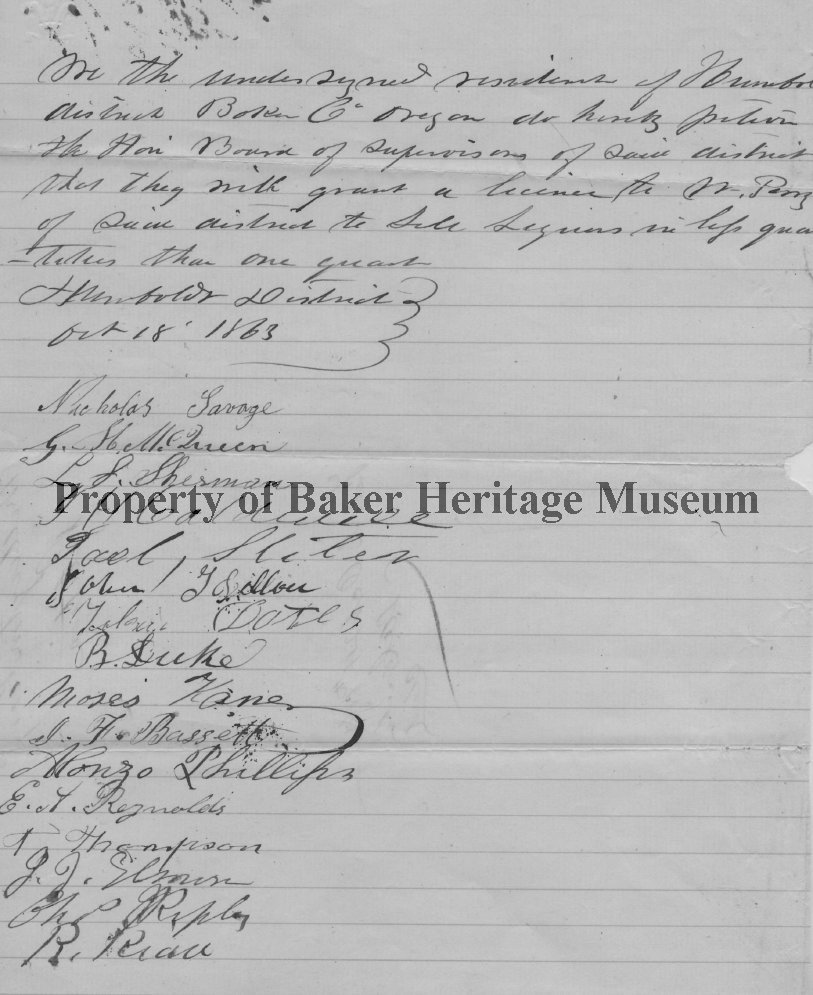 We the undersigned residents of Humbol
district Baker Co Oregon do hereby petition
the Hon Board of supervisors of said district
that they will grant a licence to W. Perry
of said district to Sell Liquors in less quan
-tities than one quart
Humboldt District
Oct 18 1863
Nicholas Savage
G. H. McQueen
L. J. Sherman
Property of Baker Heritage Museum
John
Bates
B. Duke
Moses Kane
J. F. Bassett
Alonzo Phillips
E. A. Reynolds
T Thompson
J. J.
Chs Ripley
R.